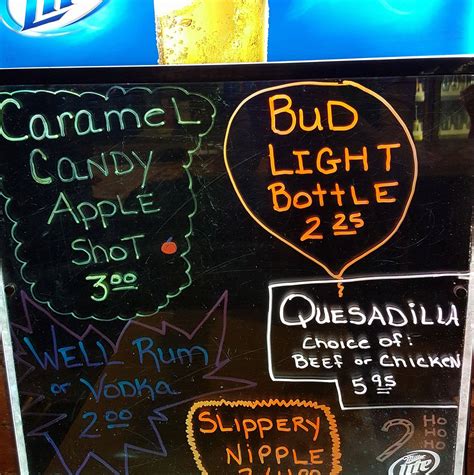 Lite
Caramel
Candy
Apple
Shot
3.00
Bud
Light
Bottle
2 25
Quesadilla
Choice of:
Beef or Chicken
5 95
Well Rum
or Vodka
2.00
Slippery
Nipple
2
Ho
Ho
Ho
Miller
Lite